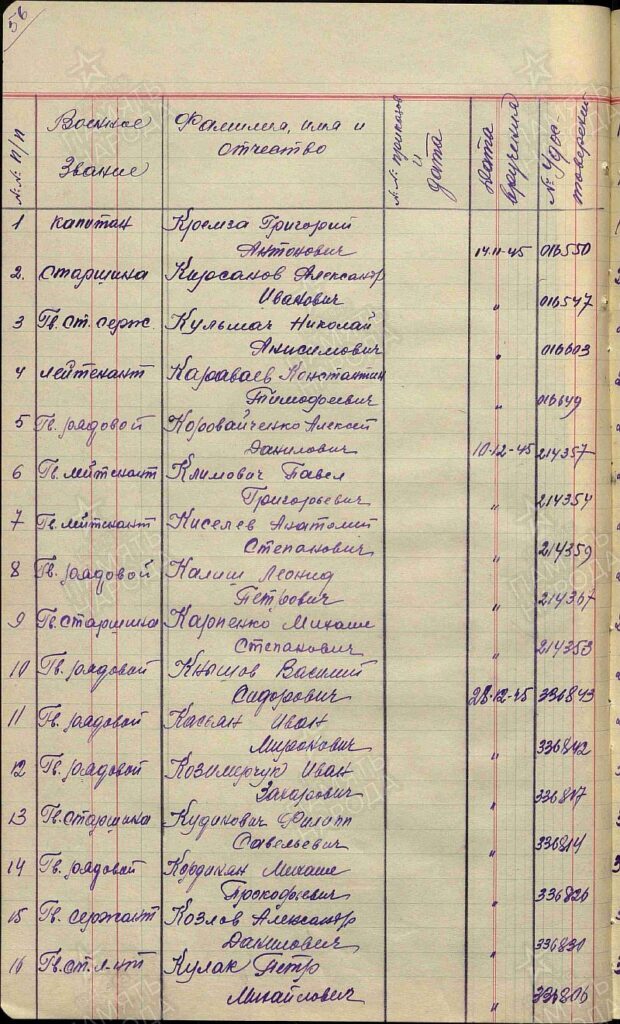 56
№№ п/п
Военное
Звание
Фамилия, имя и
отчество
№№ приказов
и
дата
Дата
вручения
№ Удос-
товерений
1 капитан Кремза Григорий
Антонович 14.11-45 016550
2. старшина Кирсанов Александр
Иванович " 016547
3 Гв. ст. серж. Кульмач Николай
Анисимович " 016603
4 лейтенант Караваев Константин
Тимофеевич " 016649
5 Гв. рядовой Коровайченко Алексей
Данилович 10-12-45 214357
6 Гв. лейтенант Климович Павел
Григорьевич " 214354
7 Гв. лейтенант Киселев Анатолий
Степанович " 214359
8 Гв. рядовой Калиш Леонид
Петрович " 214367
9 Гв. старшина Карпенко Михаил
Степанович " 214353
10 Гв. рядовой Кнышов Василий
Сидорович 28-12-45 336843
11 Гв. рядовой Касьян Иван
Миронович " 336842
12 Гв. рядовой Козимерчук Иван
Захарович " 336817
13 Гв. старшина Кудинович Филипп
Савельевич " 336814
14 Гв. рядовой Кордикан Михаил
Прокофьевич " 336826
15 Гв. сержант Козлов Александр
Данилович " 336830
16 Гв. ст. л-нт Кулак Петр
Михайлович " 336806
ПАМЯТЬ
НАРОДА